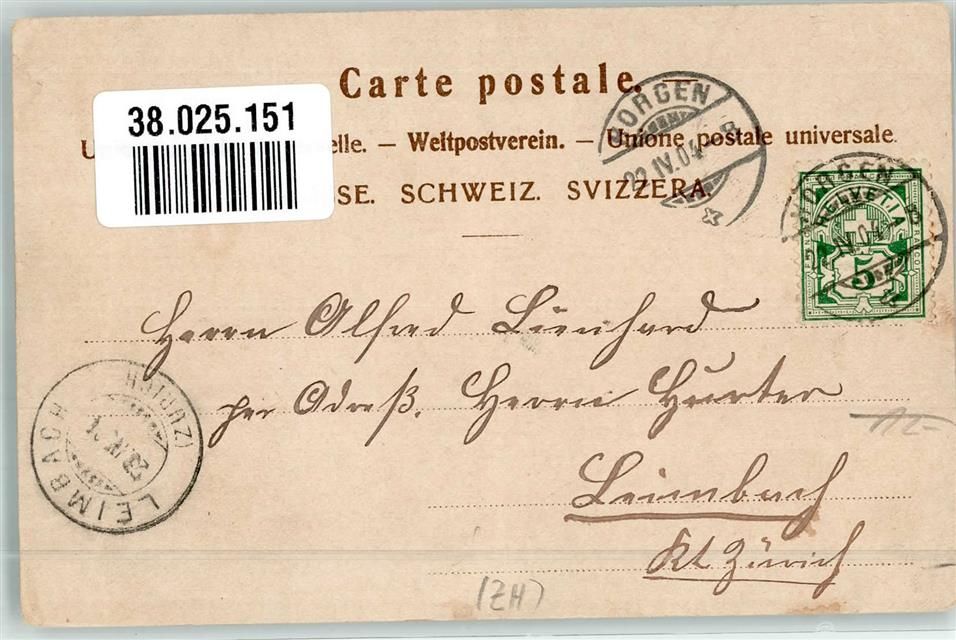 Carte postale.
38.025.151
U elle. — Weltpostverein. — Unione postale universale.
SE. SCHWEIZ. SVIZZERA.
HORGEN
22.IV.04
HORGEN
IV.04
HELVETIA
FRANCO
5
Herrn Alfred Lienhard
per Adreß. Herrn Hurter
Leimbach
Kt Zürich
LEIMBACH
(ZÜRICH)
23.IV.04
(ZH)
12.-